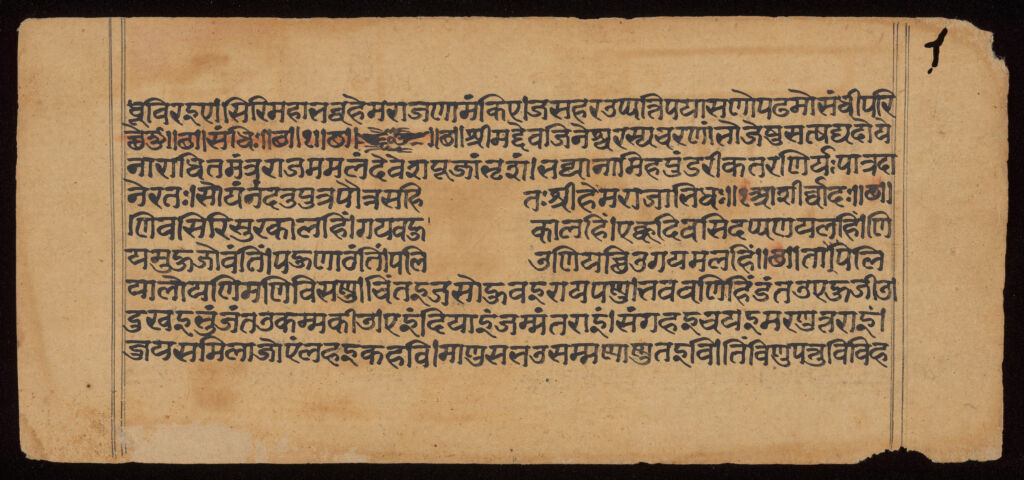 विरइए।सिरिमहाभव्वहेमराजणामंकिए।जसहरउप्पत्तिपयासणोपढमोसंधीपरि
छेउ॥छ॥संधिः॥छ॥१॥छ॥ ॥छ॥श्रीमद्देवजिनेश्वरस्यचरणां
नाराधितमंत्रराजममलं पूजां सद्ध्यानामिहपुंडरीकतरणिर्यःपात्रदा
नेरतः।सोयंनंदतुपुत्रपौत्रसहि तःश्रीहेमराजाभिधः॥आशीर्वादः॥छ॥
णिवसिरिसुरकालहिं।गयवहु कालहिं।एक्कुदिवसिदप्पणयलहिं।णि
यमुहुजोवंतिं।पहुणावंतिं।पलि उणियच्छिउगयमलहिं।छ।तापलि
यालोयणिमणिविसण्णु।चिंतइजसोहुवइरायपण्णु।भववणिहिंडंतउएहुजीउ।
दुखइभुंजंतउकम्मकीउ।एइंदियाइंजम्मंतराइं।संगहइचयइमरणुत्तराइं।
जयसमिलाजोएंलहइकहवि।माणुसभउसम्मणाणुतइवि।तिंविणुपत्तुविविह